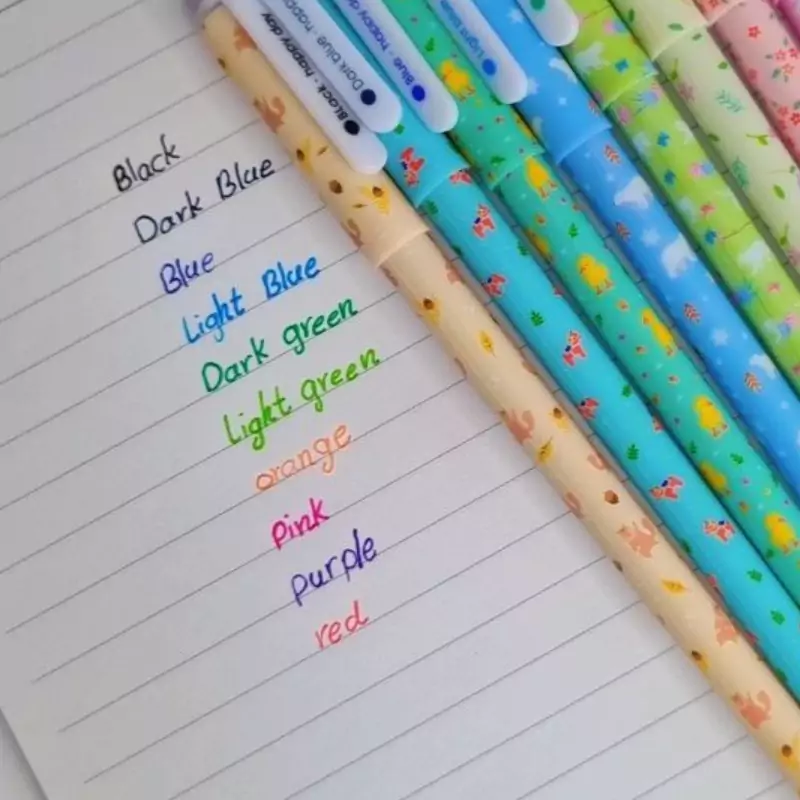 Black
Dark Blue
Blue
Light Blue
Dark green
Light green
orange
pink
purple
red
Black · happy day
Dark blue · happy
Blue · happy day
Light blue